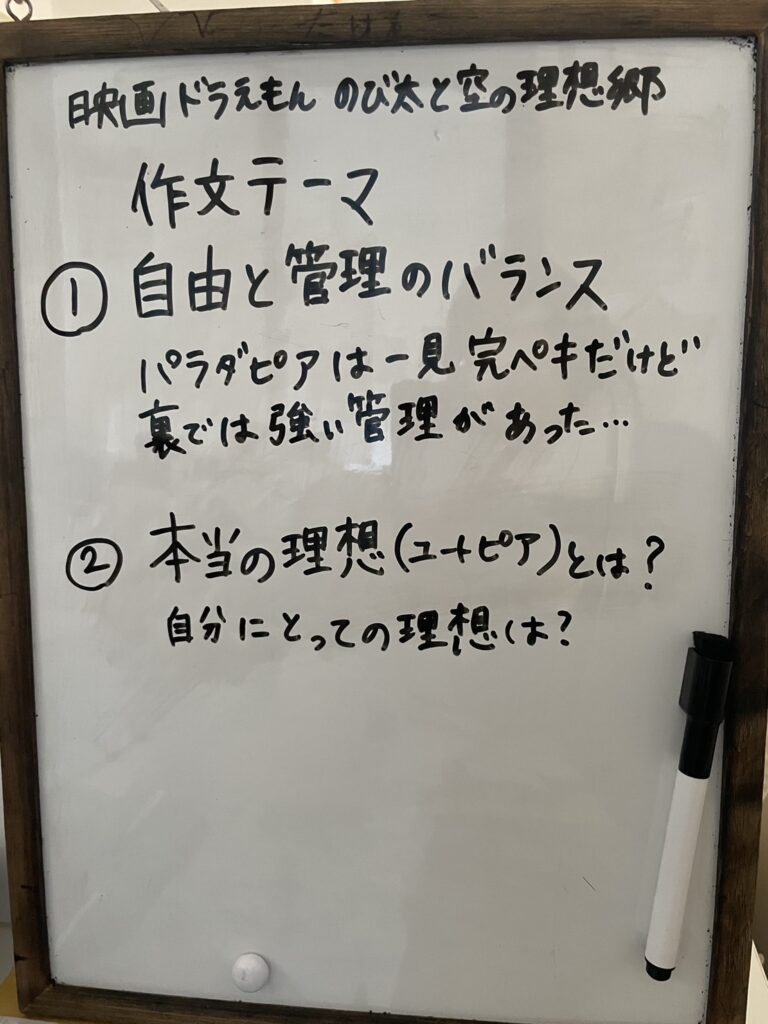 映画ドラえもん のび太と空の理想郷
作文テーマ
① 自由と管理のバランス
パラダピアは一見完ペキだけど
裏では強い管理があった…
② 本当の理想(ユートピア)とは?
自分にとっての理想は?